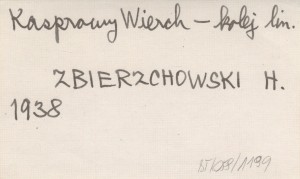 Kasprowy Wierch - kolej lin.
ZBIERZCHOWSKI H.
1938